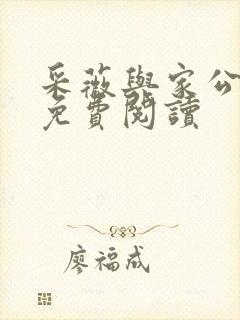 采薇與家公
免費閱讀
廖福成